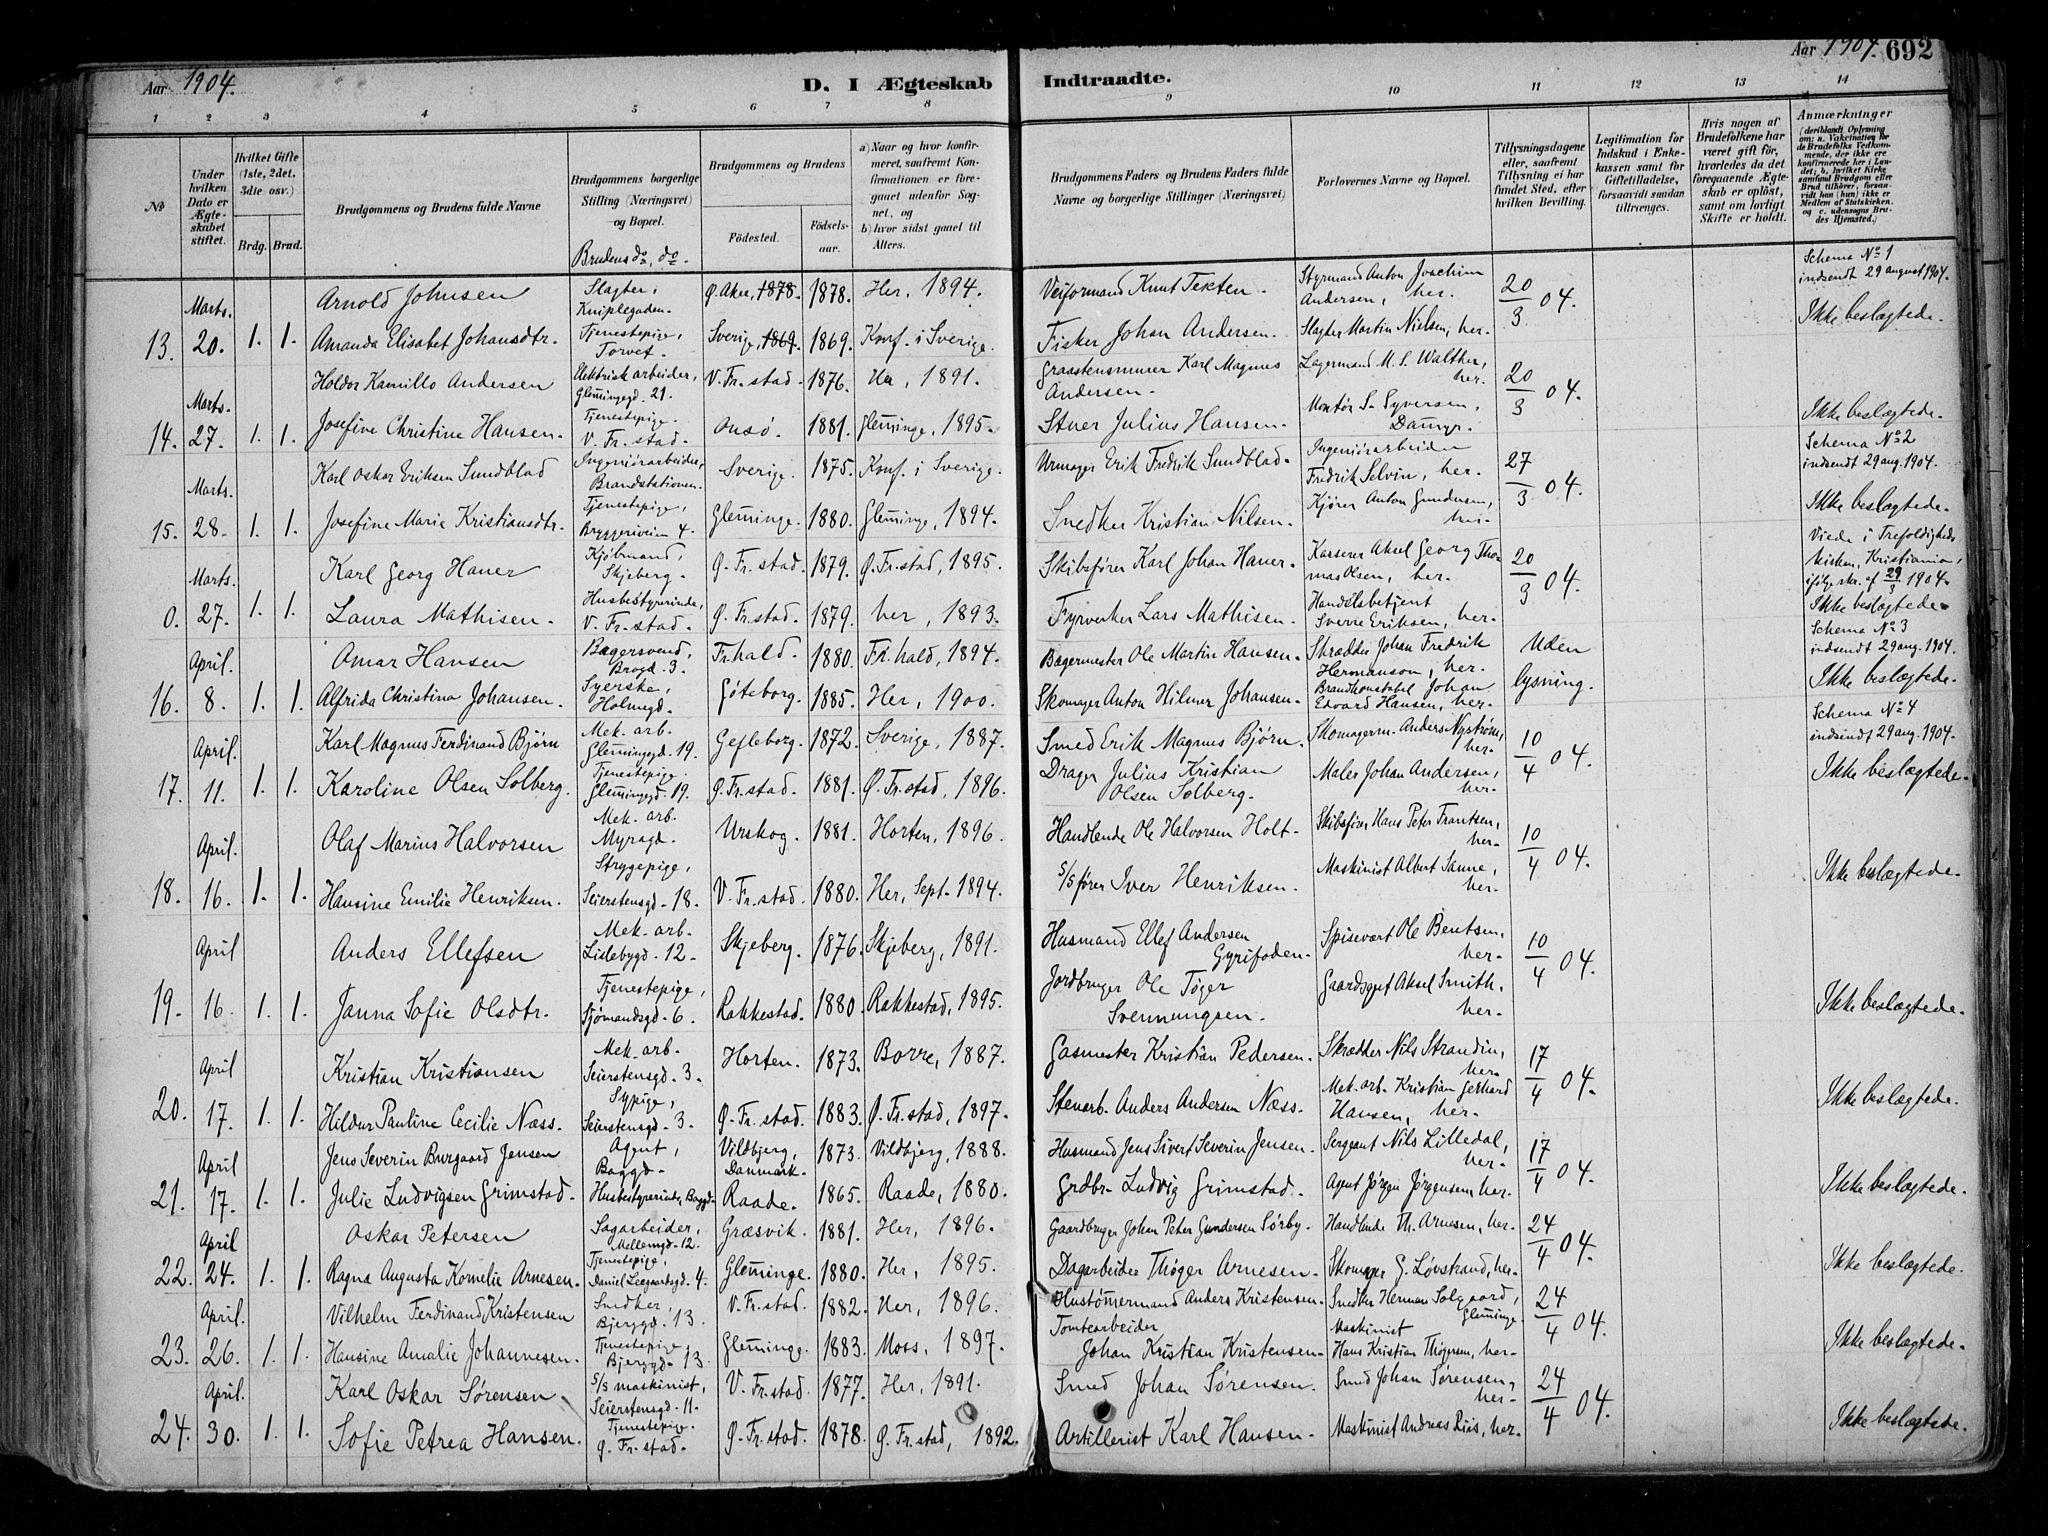 Aar 1904.
D. I Ægteskab Indtraadte.
Aar 1904. 692
1 2 3 4 5 6 7 8 9 10 11 12 13 14
No
Under hvilken Dato er Ægteskabet stiftet.
Hvilket Gifte (1ste, 2det, 3die osv.)
Brdg. Brud.
Brudgommens og Brudens fulde Navne
Brudgommens borgerlige Stilling (Næringsvei) og Bopæl.
Brudens do, do.
Brudgommens og Brudens
Födested. Födsels-aar.
a) Naar og hvor konfirmeret, saafremt Konfirmationen er foregaaet udenfor Sognet, og
b) hvor sidst gaaet til Alters.
Brudgommens Faders og Brudens Faders fulde Navne og borgerlige Stillinger (Næringsvei)
Forlovernes Navne og Bopæl.
Tillysningsdagene eller, saafremt Tillysning ei har fundet Sted, efter hvilken Bevilling.
Legitimation for Indskud i Enkekassen samt for Giftetilladelse, forsaavidt saadan tiltrænges.
Hvis nogen af Brudefolkene har været gift för, hvorledes da det foregaaende Ægteskab er oplöst, samt om lovligt Skifte er holdt.
Anmærkninger
(deriblandt Oplysning om: a. Vakcination for de Brudefolks Vedkommende, der ikke ere konfirmerede her i Landet; b. hvilket Kirkesamfund Brudgom eller Brud tilhörer, forsaavidt han (hun) ikke er Medlem af Statskirken, og c. udensogns Brudes Hjemsted.)
Marts. Arnold Johnsen Slagter, Kniplegaden. Ø. Aker, 1878. 1878. Her, 1894. Veiformand Knut Tekten. Styrmand Anton Joachim Andersen, her. 20/3 04. Schema No 1 indsendt 29 august 1904.
13. 20. 1. 1. Amanda Elisabet Johansdtr. Tjenestepige, Torvet. Sverige, 1869. 1869. Konf. i Sverige. Fisker Johan Andersen. Slagter Martin Nielsen, her. Ikke beslægtede.
Marts. Holdor Kamillo Andersen Elektrisk arbeider, Glemingegd. 21. V. Fr.stad. 1876. Her, 1891. Graastensmurer Karl Magnus Andersen. Lagermand M. S. Walther, her. 20/3 04.
14. 27. 1. 1. Josefine Christine Hansen. Tjenestepige. V. Fr. stad. Onsö. 1881. Gleminge, 1895. Stuer Julius Hansen. Montør S. Syversen, Damyr. Ikke beslægtede.
Marts. Karl Oskar Eriksen Sundblad Ingeniørarbeider, Brandstationen. Sverige. 1875. Konf. i Sverige. Urmager Erik Fredrik Sundblad. Ingeniørarbeider Fredrik Selvin, her. 27/3 04. Schema No 2 indsendt 29 aug. 1904.
15. 28. 1. 1. Josefine Marie Kristiansdtr. Tjenestepige, Bryggeriveien 4. Gleminge. 1880. Gleminge, 1894. Snedker Kristian Nilsen. Kjører Anton Gundersen, her. Ikke beslægtede.
Marts. Karl Georg Hauer Kjøbmand, Skjeberg. Ø. Fr. stad. 1879. Ø. Fr. stad, 1895. Skibsfører Karl Johan Hauer. Kasserer Aksel Georg Thomas Olsen, her. 20/3 04. Viede i Trefoldigheds kirken, Kristiania, ifølge skr. af 29/3 1904.
0. 27. 1. 1. Laura Mathisen. Husbestyrerinde, V. Fr. stad. Ø. Fr. stad. 1879. her, 1893. Fyrverker Lars Mathisen. Handelsbetjent Sverre Eriksen, her. Ikke beslægtede.
April. Omar Hansen Bagersvend, Brogd. 3. Fr.hald. 1880. Fr. hald, 1894. Bagermester Ole Martin Hansen. Skrædder Johan Fredrik Hermanson, her. Uden lysning. Schema No 3 indsendt 29 aug. 1904.
16. 8. 1. 1. Alfrida Christina Johansen. Syerske, Holmegd. Göteborg. 1885. Her, 1900. Skomager Anton Hilmer Johansen. Brandkonstabel Johan Edvard Hansen, her. Ikke beslægtede.
April. Karl Magnus Ferdinand Bjørn Mek. arb. Glemingegd. 19. Gefleborg. 1872. Sverige, 1887. Smed Erik Magnus Bjørn. Skomagerm. Anders Nystrøm, her. 10/4 04. Schema No 4 indsendt 29 aug. 1904.
17. 11. 1. 1. Karoline Olsen Solberg. Tjenestepige. Glemingegd. 19. Ø. Fr. stad. 1881. Ø. Fr. stad, 1896. Drager Julius Kristian Olsen Solberg. Maler Johan Andersen, her. Ikke beslægtede.
April. Olaf Marius Halvorsen Mek. arb. Myragd. Urskog. 1881. Horten, 1896. Handlende Ole Halvorsen Holt. Skibsfører Hans Peter Frantsen, her. 10/4 04.
18. 16. 1. 1. Hansine Emilie Henriksen. Strygepige, Seierstensgd. 18. V. Fr. stad. 1880. Her, Sept. 1894. S/S fører Iver Henriksen. Maskinist Albert Sanne, her. Ikke beslægtede.
April Anders Ellefsen Mek. arb. Lislebygd. 12. Skjeberg. 1876. Skjeberg, 1891. Husmand Ellef Andersen Gyrifoden. Spisevært Ole Bentsen, her. 10/4 04.
19. 16. 1. 1. Janna Sofie Olsdtr. Tjenestepige, Sjømandsgd. 6. Rakkestad. 1880. Rakkestad, 1895. Jordbruger Ole Tøger Svennungsen. Gaardsgut Aksel Smith, her. Ikke beslægtede.
April Kristian Kristiansen Mek. arb. Seierstensgd. 3. Horten. 1873. Borre, 1887. Gasmester Kristian Pedersen. Skrædder Nils Strandin, her. 17/4 04.
20. 17. 1. 1. Hildur Pauline Cecilie Næss. Sypige, Seierstensgd. 3. Ø. Fr. stad. 1883. Ø. Fr. stad, 1897. Stenarb. Anders Andersen Næss. Mek. arb. Kristian Gerhard Hansen, her. Ikke beslægtede.
April Jens Severin Burgaard Jensen Agent, Baggd. Vildbjerg, Danmark. 1873. Vildbjerg, 1888. Husmand Jens Sivert Severin Jensen. Sergeant Nils Lilledal, her. 17/4 04.
21. 17. 1. 1. Julie Ludvigsen Grimstad. Husbestyrerinde, Baggd. Raade. 1865. Raade, 1880. Grdbr. Ludvig Grimstad. Agent Jørgen Jørgensen, her. Ikke beslægtede.
April Oskar Petersen Sagarbeider, Mellemgd. 12. Græsvik. 1881. Her, 1896. Gaardbruger Johan Peter Gundersen Sørby. Handlende Th. Arnesen, her. 24/4 04.
22. 24. 1. 1. Ragna Augusta Kornelie Arnesen. Tjenestepige, Daniel Leegaardsgd. 4. Gleminge. 1880. Her, 1895. Dagarbeider Thøger Arnesen. Skomager G. Løvstrand, her. Ikke beslægtede.
April. Vilhelm Ferdinand Kristensen Snedker, Bjerggd. 13. V. Fr. stad. 1882. Her, 1896. Hustømermand Anders Kristensen. Snedker Herman Solgaard, Gleminge. 24/4 04.
23. 26. 1. 1. Hansine Amalie Johannesen. Tjenestepige Bjerggd. 13. Gleminge. 1883. Moss, 1897. Tomtearbeider Johan Kristian Kristensen. Maskinist Hans Kristian Thøgersen, her. Ikke beslægtede.
April. Karl Oskar Sørensen S/S maskinist, Seierstensgd. 11. V. Fr. stad. 1877. Her, 1891. Smed Johan Sørensen. Smed Johan Sørensen, her. 24/4 04.
24. 30. 1. 1. Sofie Petrea Hansen. Tjenestepige. Ø. Fr. stad. Ø. Fr. stad. 1878. Ø. Fr. stad, 1892. Artillerist Karl Hansen. Maskinist Andreas Riis, her. Ikke beslægtede.